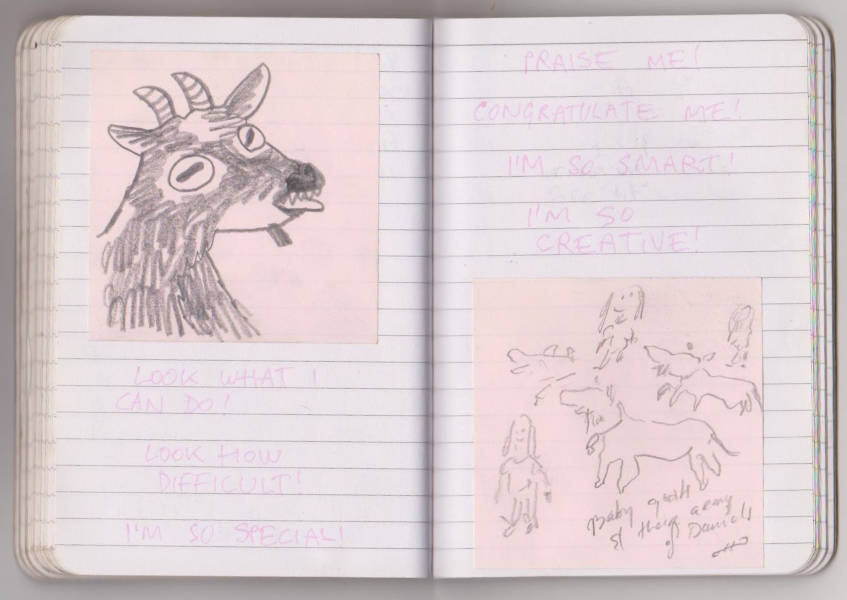 LOOK WHAT I
CAN DO!
LOOK HOW
DIFFICULT!
I'M SO SPECIAL!
PRAISE ME!
CONGRATULATE ME!
I'M SO SMART!
I'M SO
CREATIVE!
Baby
& their army
of Daniels